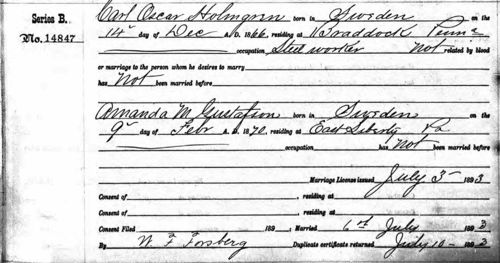 Series B.
No. 14847
Carl Oscar Holmgren born in Sweden
14" day of Dec A. D. 1866, residing at Braddock Penn'a
occupation Steel worker Not related by blood
or marriage to the person whom he desires to marry
has Not been married before
Amanda M. Gustafson born in Sweden
9" day of Febr A. D. 1870, residing at East Liberty Pa
occupation has Not been married before
Marriage License issued July 3" 1893
Consent of residing at
Consent of residing at
Consent Filed 189 , Married 6th July 1893
By W. F. Forsberg Duplicate certificate returned July 10" 1893